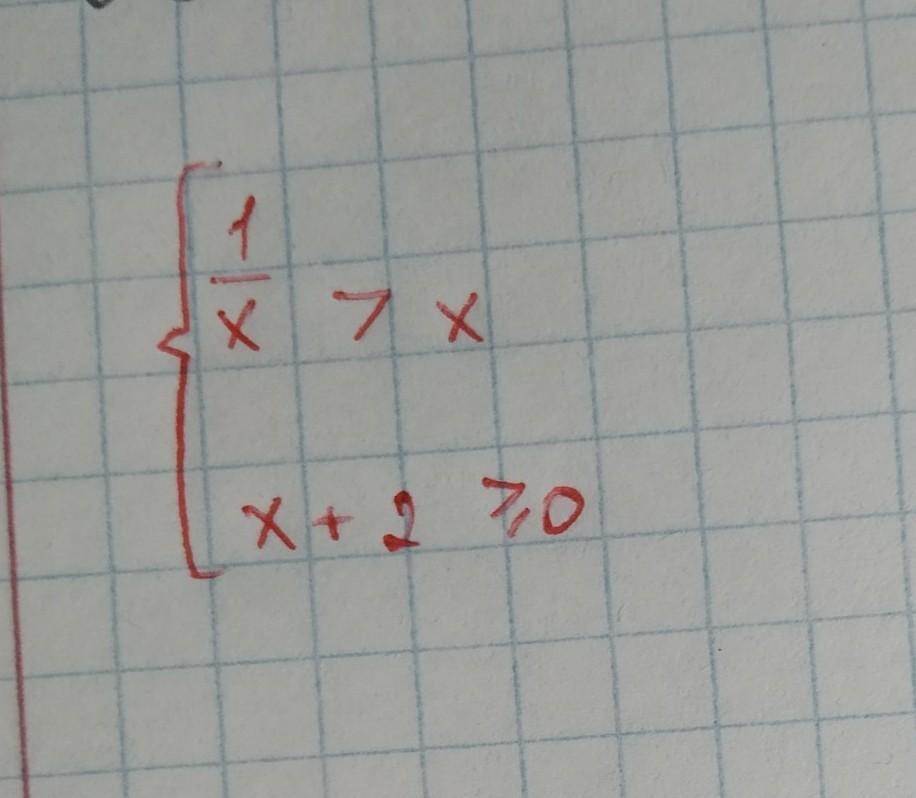 1/x > x
x + 2 ⩾ 0